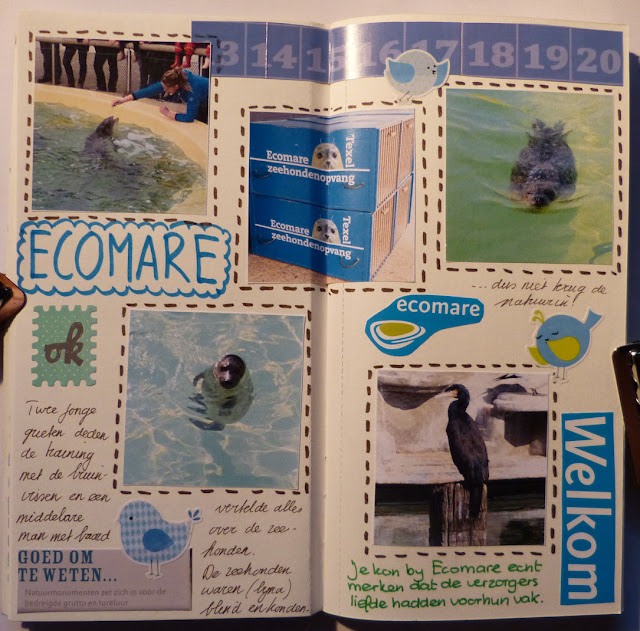 13 14 15 16 17 18 19 20
Ecomare Texel
zeehondenopvang
Ecomare Texel
zeehondenopvang
ECOMARE
ok
Twee jonge
grieten deden
de training
met de bruin-
vissen en een
middelbare
man met baard
GOED OM
TE WETEN...
Natuurmonumenten zet zich in voor de
bedreigde grutto en tureluur
vertelde alles
over de zee-
honden.
De zeehonden
waren (bijna)
blind en konden
... dus niet terug de
natuur in!
ecomare
Welkom
Je kon by Ecomare echt
merken dat de verzorgers
liefde hadden voor hun vak.